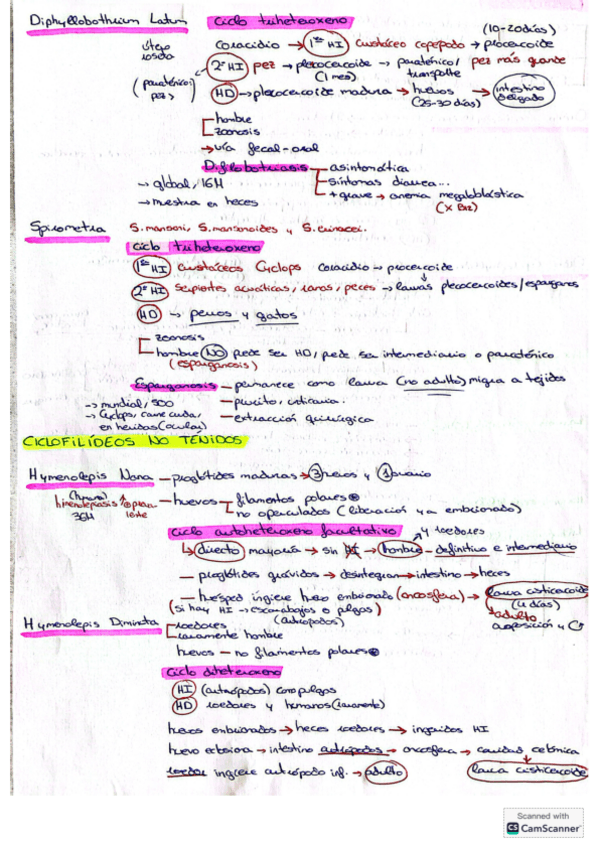 Diphyllobothrium Latum
Ciclo triheteroxeno
(10-20 días)
Coracidio → 1er HI crustáceo copépodo → procercoide
útero roseta
2º HI pez → plerocercoide → paraténico/transporte pez más grande
(1 mes)
(paraténico: pez)
HD → plerocercoide madura → huevos → intestino delgado
(25-30 días)
hombre
zoonosis
→ vía fecal-oral
Difilobotriasis
asintomática
→ global, 16M
síntomas diarrea...
→ muestra en heces
+ grave → anemia megaloblástica
(x B12)
Spirometra
S. mansoni, S. mansonoides y S. erinacei.
Ciclo triheteroxeno
1er HI crustáceos Cyclops coracidio → procercoide
2º HI serpientes acuáticas, ranas, peces → larvas plerocercoides/esparganos
HD → perros y gatos
zoonosis
hombre NO puede ser HD, puede ser intermediario o paraténico
(esparganosis)
Esparganosis
— permanece como larva (no adulto) migra a tejidos
→ mundial, 300
— prurito, urticaria..
→ Cyclops, carne cruda, en heridas (ocular)
— extracción quirúrgica
CICLOFILÍDEOS NO TENIDOS
Hymenolepis Nana — proglótides maduras → 3 huevos y 1 ovario
himenolepiasis
— huevos
filamentos polares
no operculados (liberación ya embrionado)
Ciclo autoheteroxeno facultativo
y roedores
↳ directo mayoría → sin HI → hombre — definitivo e intermediario
— proglótides grávidos → desintegran → intestino → heces
— huésped ingiere huevo embrionado (oncosfera) → larva cisticercoide
(4 días)
(si hay HI → escarabajos o pulgas)
(artrópodos)
→ adulto
Hymenolepis Diminuta
roedores
raramente hombre
huevos — no filamentos polares
Ciclo diheteroxeno
HI (artrópodos) como pulgas
HD roedores y humanos (raramente)
huevos embrionados → heces roedores → ingeridos HI
huevo eclosiona → intestino artrópodos → oncosfera → cavidad celómica
roedor ingiere artrópodo inf. → adulto
larva cisticercoide
Scanned with
CS CamScanner